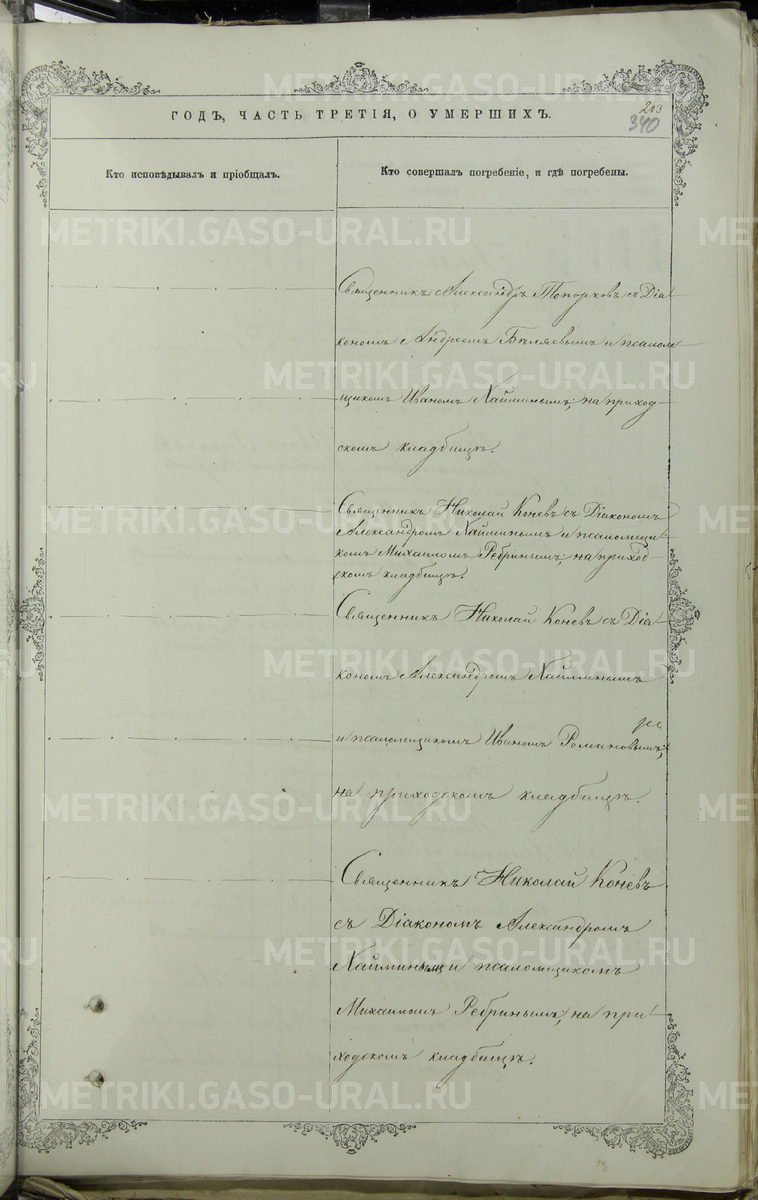 ГОДЪ, ЧАСТЬ ТРЕТІЯ, О УМЕРШИХЪ.
203
340
Кто исповѣдывалъ и пріобщалъ.
Кто совершалъ погребеніе, и гдѣ погребены.
Священникъ Александръ Топорковъ съ Діа-
кономъ Андреемъ Бѣляевымъ и псалом-
щикомъ Иваномъ Хайминымъ, на приход-
скомъ кладбищѣ.
Священникъ Николай Коневъ съ Діакономъ
Александромъ Хайминымъ и псаломщи-
комъ Михаиломъ Ребринымъ, на приход-
скомъ кладбищѣ.
Священникъ Николай Коневъ съ Діа-
кономъ Александромъ Хайминымъ
и псаломщикомъ Иваномъ Романовымъ,
на приходскомъ кладбищѣ.
Священникъ Николай Коневъ
съ Діакономъ Александромъ
Хайминымъ и псаломщикомъ
Михаиломъ Ребринымъ, на при-
ходскомъ кладбищѣ.
METRIKI.GASO-URAL.RU